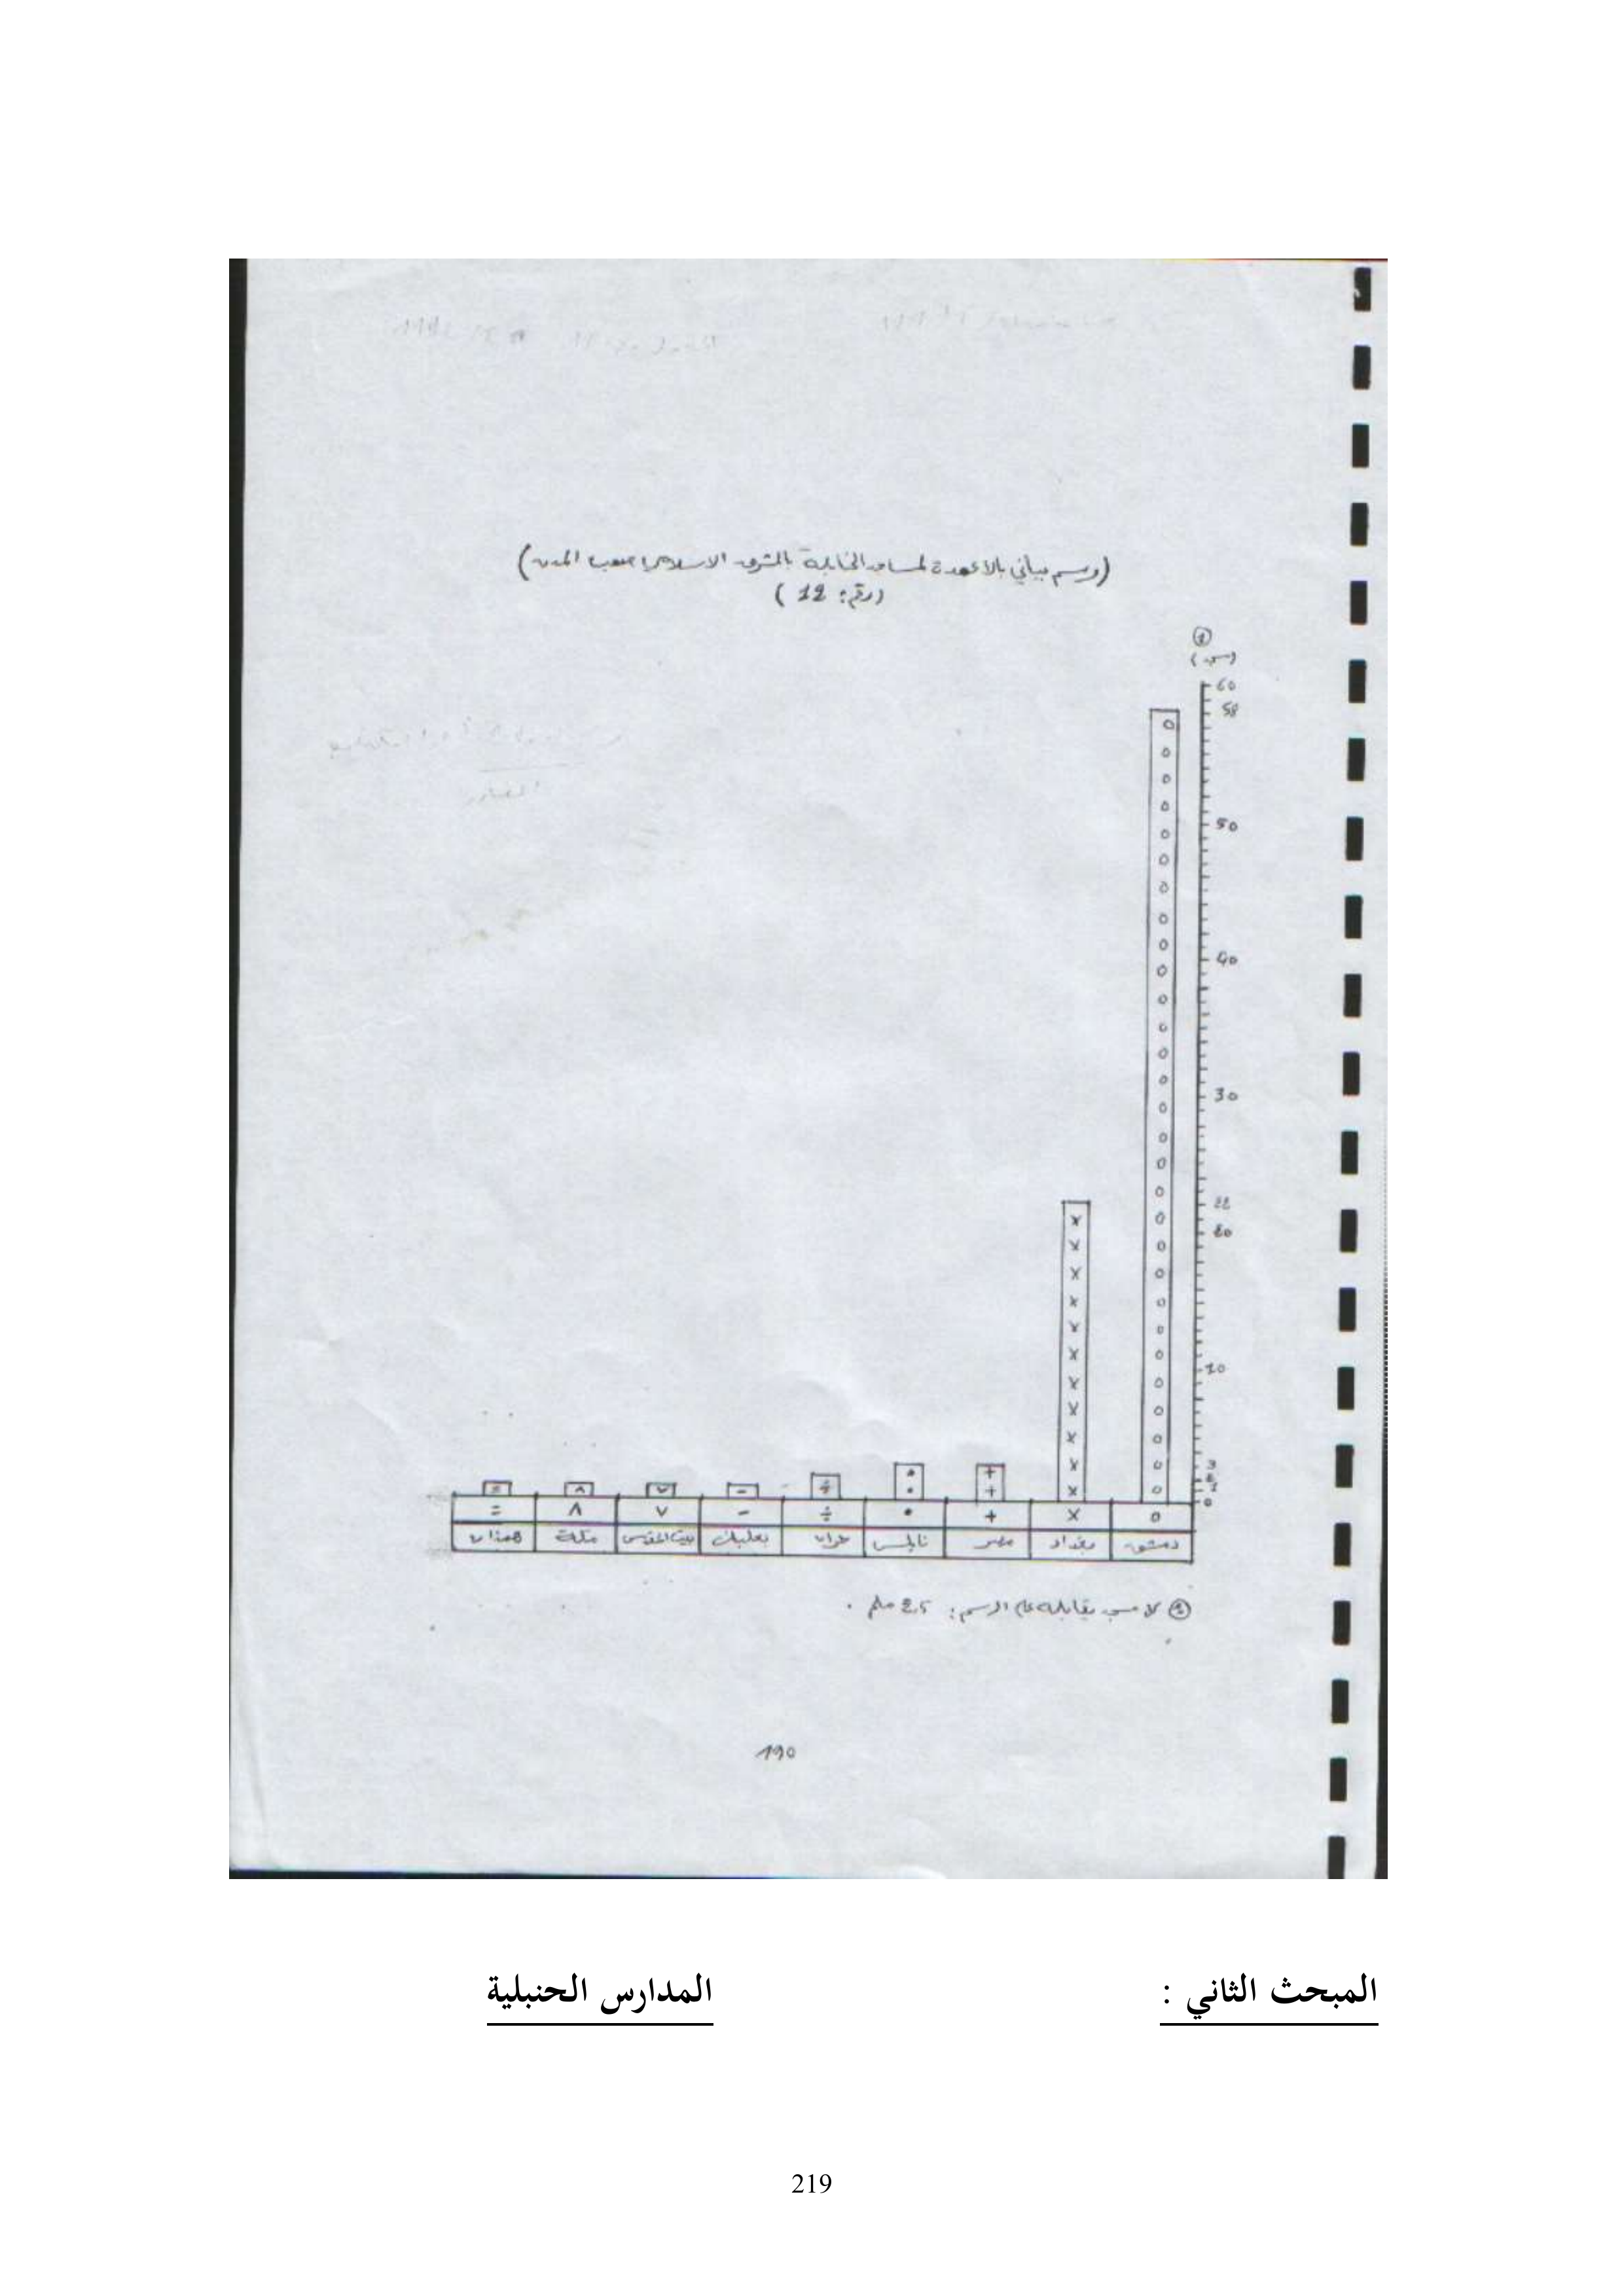 (رسم بياني بالأعمدة لمساجد الحنابلة بالمشرق الإسلامي حسب المدن)
(رقم: 12)
①
60
58
50
40
30
22
20
10
3
2
1
0
o × + • ÷ - ∨ ∧ =
دمشق بغداد مصر نابلس حران بعلبك بيت المقدس مكة همذان
① كل مسجد يقابله على الرسم: 2,5 ملم .
190
المبحث الثاني : المدارس الحنبلية
219